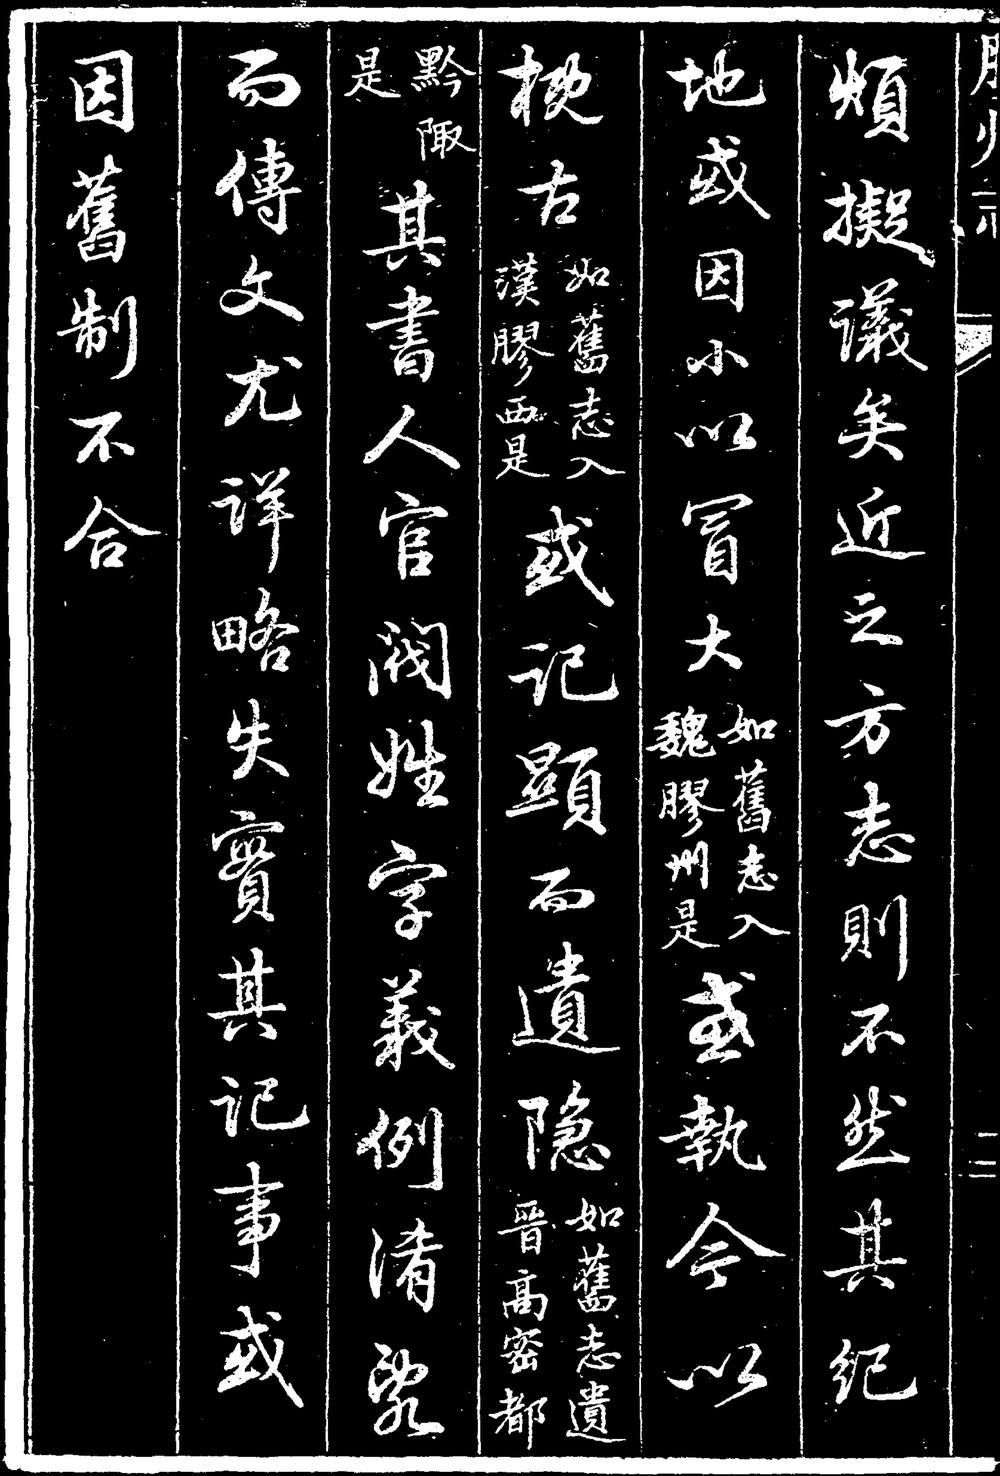 膠州志
二
煩擬議矣近之方志則不然其紀
地或因小以冒大如舊志入魏膠州是或執今以
概古如舊志入漢膠西是或記顯而遺隐如舊志遺晉高密都
黔陬是其書人官閥姓字義例淆
而傳文尤詳略失實其記事或
因舊制不合